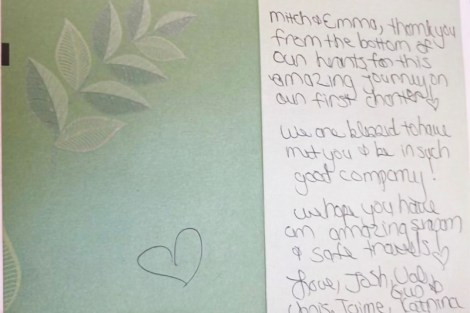 mitch & Emma, thank you
from the bottom of
our hearts for this
amazing journey on
our first charter!
We are blessed to have
met you & be in such
good company!
We hope you have
an amazing season
& safe travels!
Love, Josh, Val,
Chris, Jaime, Catrina